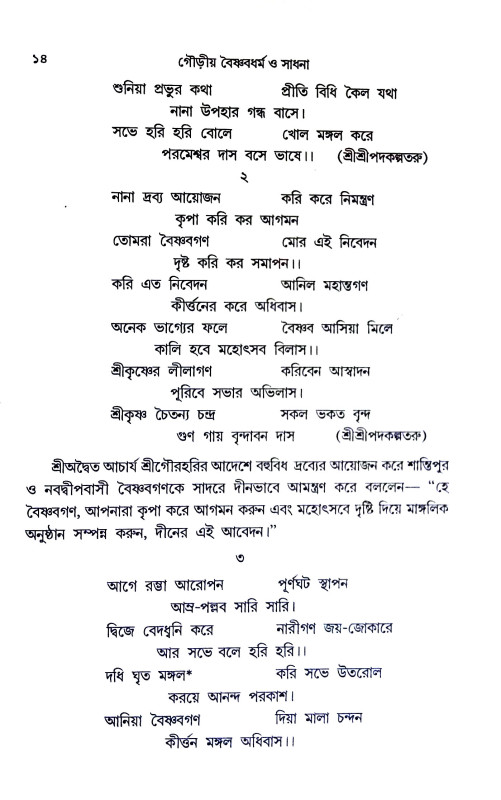 ১৪ গৌড়ীয় বৈষ্ণবধর্ম ও সাধনা
শুনিয়া প্রভুর কথা প্রীতি বিধি কৈল যথা
নানা উপহার গন্ধ বাসে।
সভে হরি হরি বোলে খোল মঙ্গল করে
পরমেশ্বর দাস বসে ভাষে।। (শ্রীশ্রীপদকল্পতরু)
২
নানা দ্রব্য আয়োজন করি করে নিমন্ত্রণ
কৃপা করি কর আগমন
তোমরা বৈষ্ণবগণ মোর এই নিবেদন
দৃষ্ট করি কর সমাপন।।
করি এত নিবেদন আনিল মহান্তগণ
কীর্ত্তনের করে অধিবাস।
অনেক ভাগ্যের ফলে বৈষ্ণব আসিয়া মিলে
কালি হবে মহোৎসব বিলাস।।
শ্রীকৃষ্ণের লীলাগণ করিবেন আস্বাদন
পূরিবে সভার অভিলাস।
শ্রীকৃষ্ণ চৈতন্য চন্দ্র সকল ভকত বৃন্দ
গুণ গায় বৃন্দাবন দাস (শ্রীশ্রীপদকল্পতরু)
শ্রীঅদ্বৈত আচার্য শ্রীগৌরহরির আদেশে বহুবিধ দ্রব্যের আয়োজন করে শান্তিপুর
ও নবদ্বীপবাসী বৈষ্ণবগণকে সাদরে দীনভাবে আমন্ত্রণ করে বললেন— “হে
বৈষ্ণবগণ, আপনারা কৃপা করে আগমন করুন এবং মহোৎসবে দৃষ্টি দিয়ে মাঙ্গলিক
অনুষ্ঠান সম্পন্ন করুন, দীনের এই আবেদন।”
৩
আগে রম্ভা আরোপন পূর্ণঘট স্থাপন
আম্র-পল্লব সারি সারি।
দ্বিজে বেদধ্বনি করে নারীগণ জয়-জোকারে
আর সভে বলে হরি হরি।।
দধি ঘৃত মঙ্গল* করি সভে উতরোল
করয়ে আনন্দ পরকাশ।
আনিয়া বৈষ্ণবগণ দিয়া মালা চন্দন
কীর্ত্তন মঙ্গল অধিবাস।।